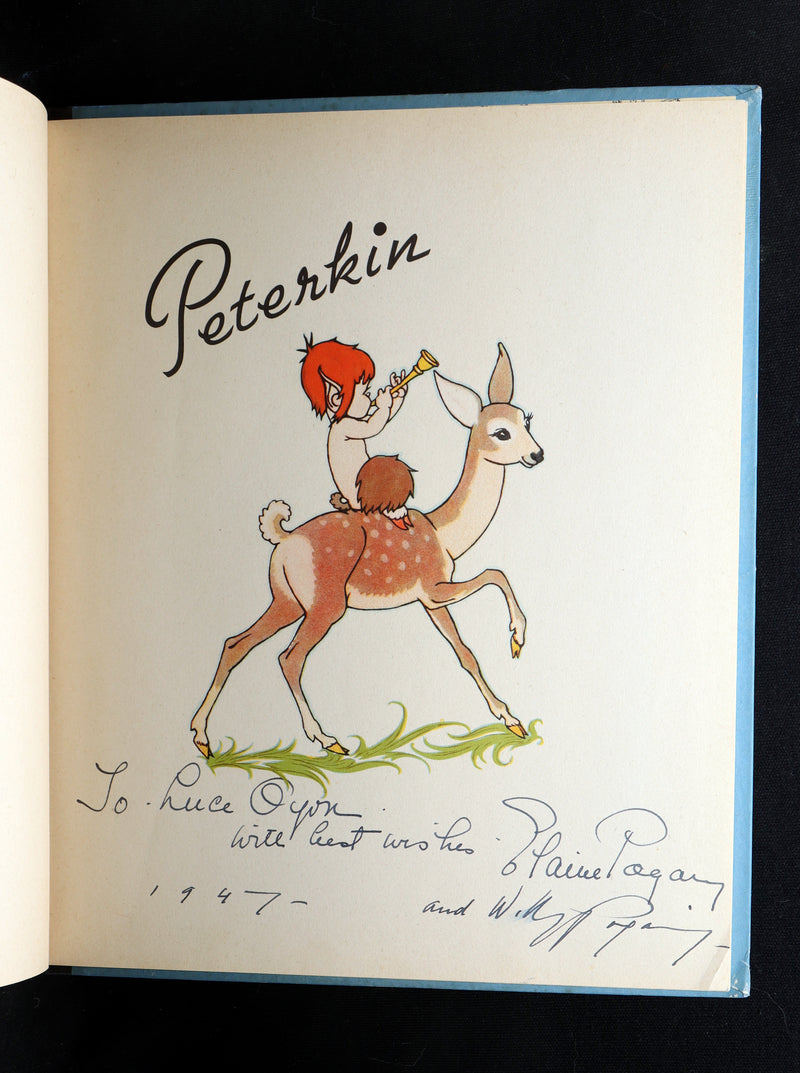 Peterkin
To Luce Oyon
with best wishes
Elaine Pogany
1947-
and Willy Pogany-